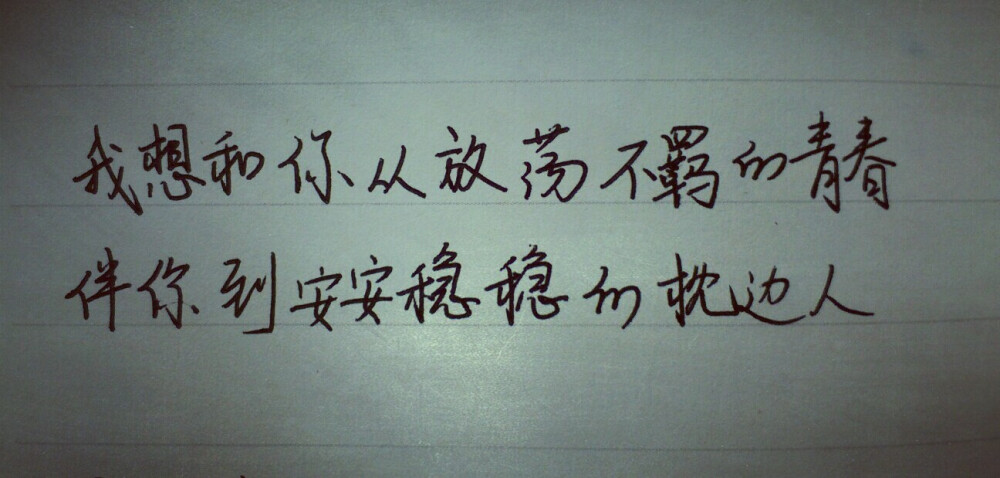 我想和你从放荡不羁的青春
伴你到安安稳稳的枕边人